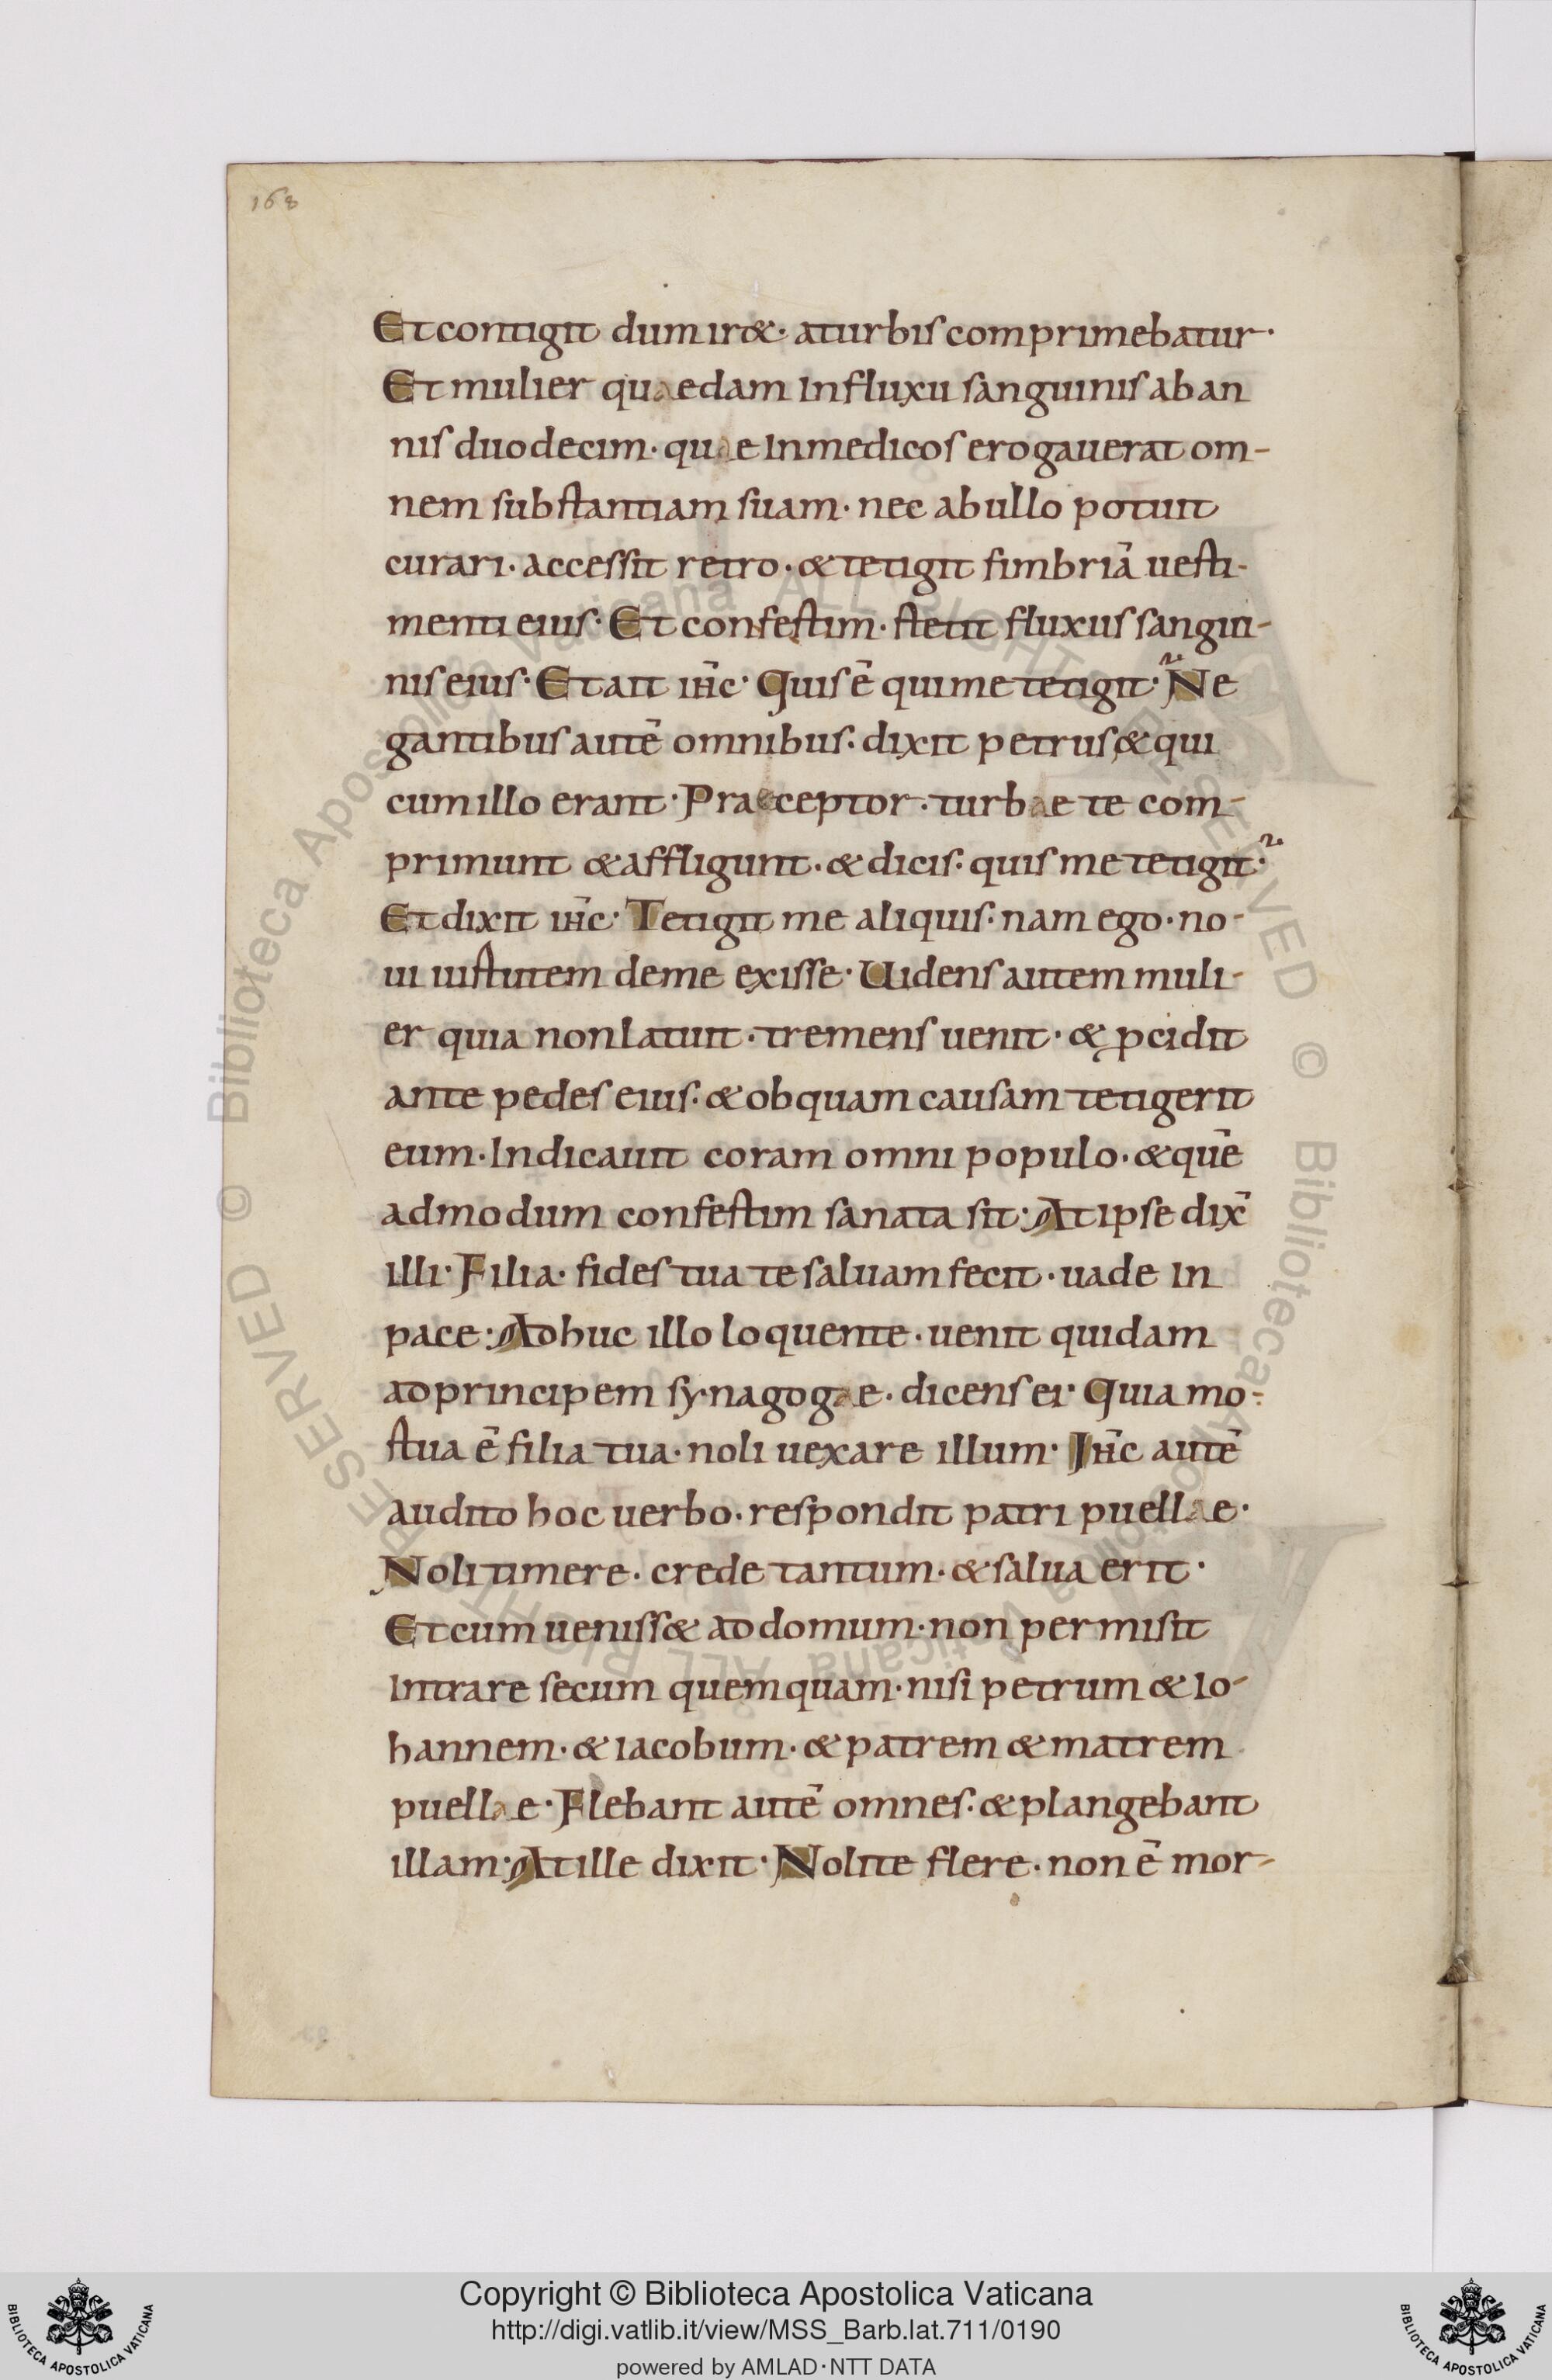 168
Et contigit dum iret · a turbis comprimebatur ·
Et mulier quaedam in fluxu sanguinis ab an
nis duodecim · quae in medicos erogauerat om-
nem substantiam suam · nec ab ullo potuit
curari · accessit retro · & tetigit fimbriā uesti-
menti eius · Et confestim · stetit fluxus sangui-
nis eius · Et ait ih̄c · Quis ē qui me tetigit · Ne
gantibus autē omnibus · dixit petrus & qui
cum illo erant · Praeceptor · turbae te com-
primunt & affligunt · & dicis · quis me tetigit ·
Et dixit ih̄c · Tetigit me aliquis · nam ego · no-
ui uirtutem de me exisse · Uidens autem muli-
er quia non latuit · tremens uenit · & ꝓcidit
ante pedes eius · & ob quam causam tetigerit
eum · Indicauit coram omni populo · & quē
admodum confestim sanata sit · At ipse dix̄
illi · Filia · fides tua te saluam fecit · uade in
pace : Adhuc illo loquente · uenit quidam
ad principem synagogae · dicens ei · Quia mor-
tua ē filia tua · noli uexare illum · Ih̄c autē
audito hoc uerbo · respondit patri puellae ·
Noli timere · crede tantum · & salua erit ·
Et cum uenisset ad domum · non permisit
intrare secum quemquam · nisi petrum & io-
hannem · & iacobum · & patrem & matrem
puellae · Flebant autē omnes · & plangebant
illam · At ille dixit · Nolite flere · non ē mor-
© Biblioteca Apostolica Vaticana ALL RIGHTS RESERVED
© Biblioteca Apostolica Vaticana ALL RIGHTS RESERVED
Copyright © Biblioteca Apostolica Vaticana
http://digi.vatlib.it/view/MSS_Barb.lat.711/0190
powered by AMLAD·NTT DATA
BIBLIOTECA APOSTOLICA VATICANA
BIBLIOTECA APOSTOLICA VATICANA